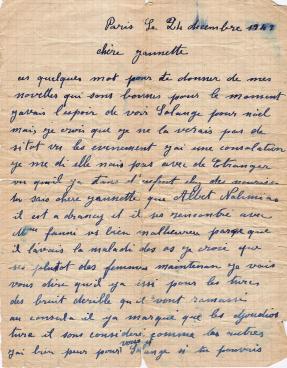 Paris Le 24 decembre 194
chère yannette
es quelques mot pour te donner de mes
novelles qui sons bonnes pour le moment
yavais l'espoir de voir Solange pour noel
mais ye crois que ye ne la verais pas de
sitot vis les evenement y'ai une consolation
ye me di elle nais pas avec de etranger
vu quil ya dans d'enfent chez des nourrises
tu sais chère yannette que Albert
il est a drancy et il se rencontre avec
fanni es bien malheureu parsque
il lavais la maladi des os ye crois que
ses plutot des femmes maintenan ya vais
vous dire quil ya issi pour les turcs
des bruit der quil vont ramassé
au consula il ya marqué que les
ture il sons consideré comme les autres
y'ai bien peur pour Solange si tu pouvais